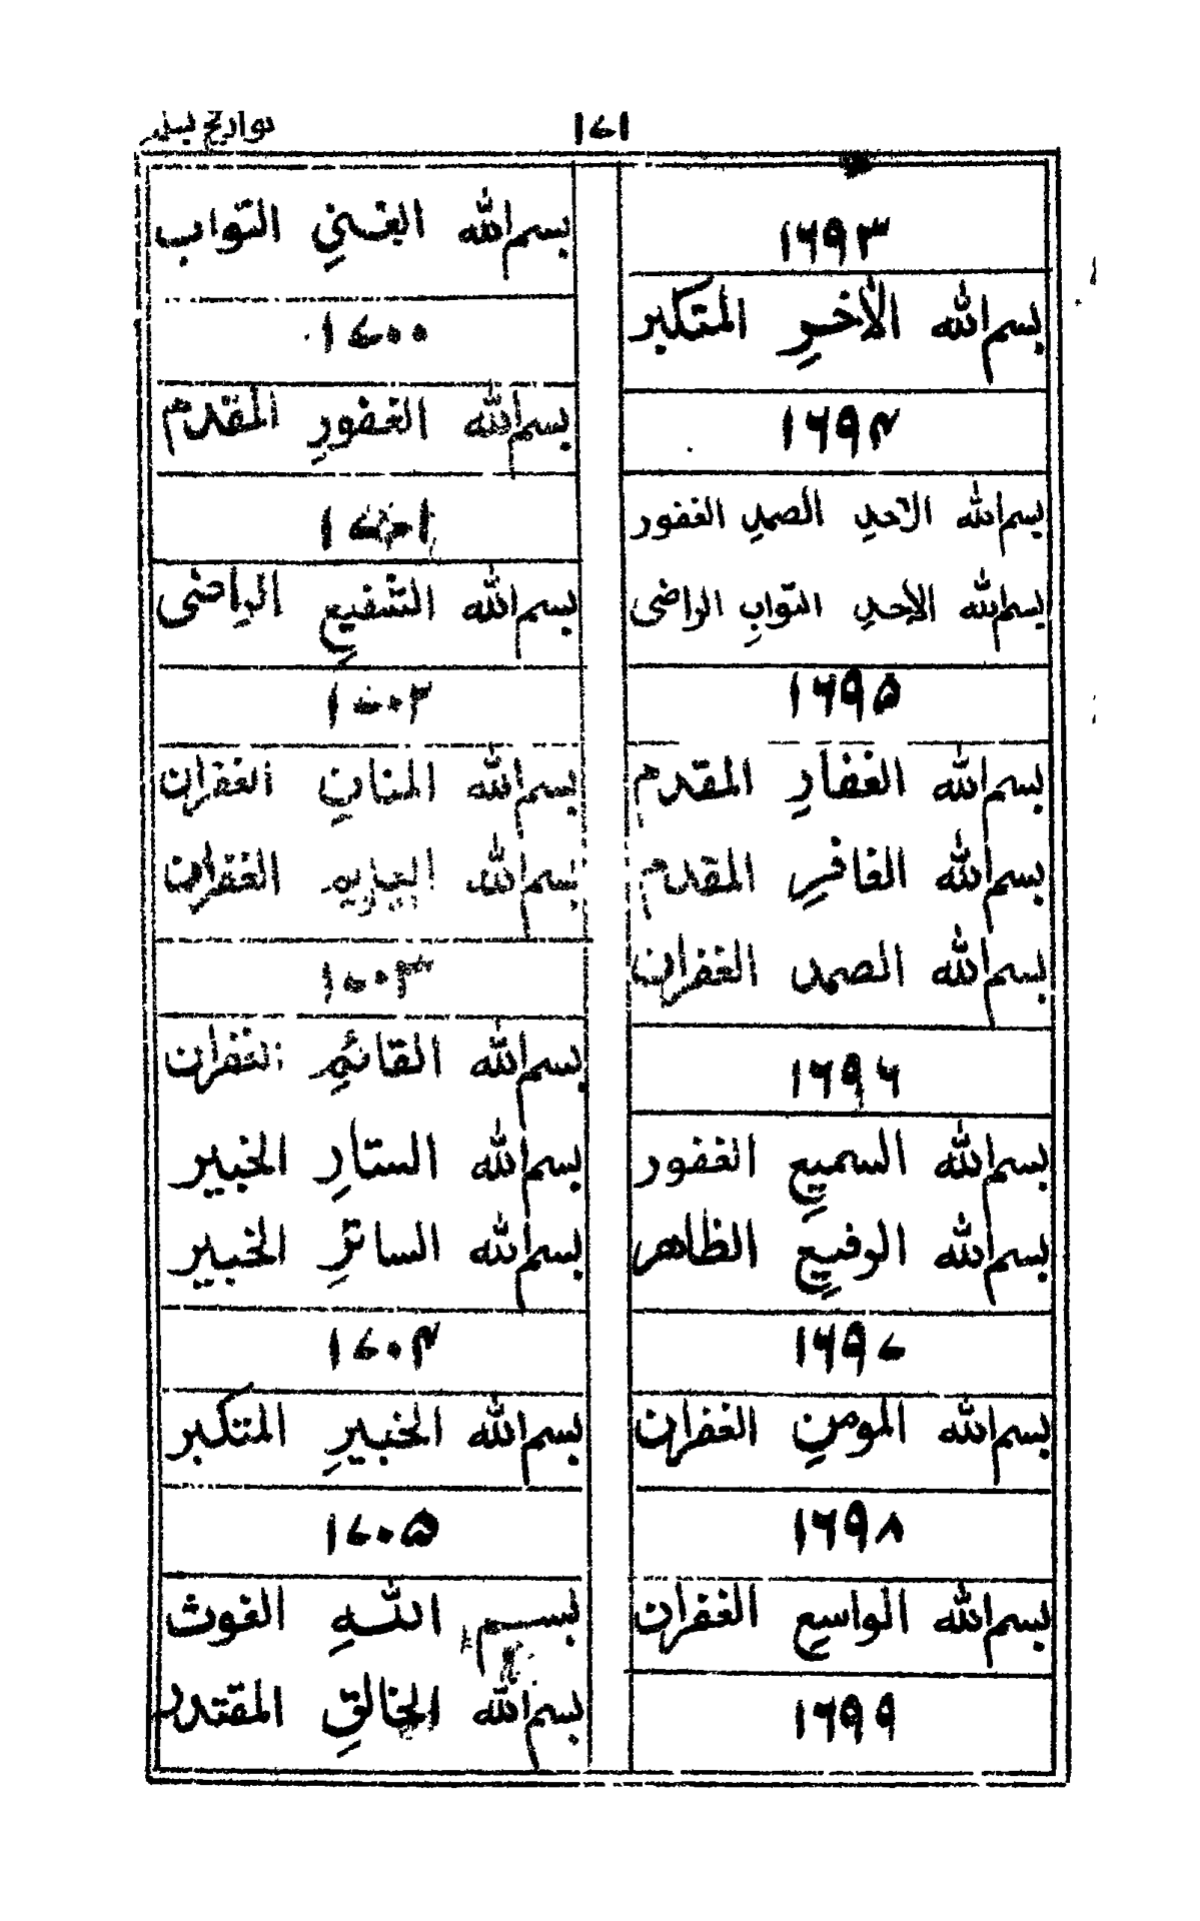 ۱۷۱
۱۶۹۳
بسم الله الأخرِ المتکبر
۱۶۹۴
بسم الله الاحدِ الصمدِ الغفور
بسم الله الاحدِ التوّابِ الراضی
۱۶۹۵
بسم الله الغفارِ المقدم
بسم الله الغافرِ المقدم
بسم الله الصمد الغفران
۱۶۹۶
بسم الله السمیعِ الغفور
بسم الله الرفیعِ الظاهر
۱۶۹۷
بسم الله المومنِ الغفران
۱۶۹۸
بسم الله الواسعِ الغفران
۱۶۹۹
بسم الله الغنیِ التواب
۱۷۰۰
بسم الله الغفورِ المقدم
۱۷۰۱
بسم الله الشفیعِ الراضی
۱۷۰۲
بسم الله المنانِ الغفران
بسم الله الغفران
۱۷۰۳
بسم الله القائمِ الغفران
بسم الله الستارِ الخبیر
بسم الله الساترِ الخبیر
۱۷۰۴
بسم الله الخبیرِ المتکبر
۱۷۰۵
بسم اللهِ الغوث
بسم الله الخالقِ المقتدر